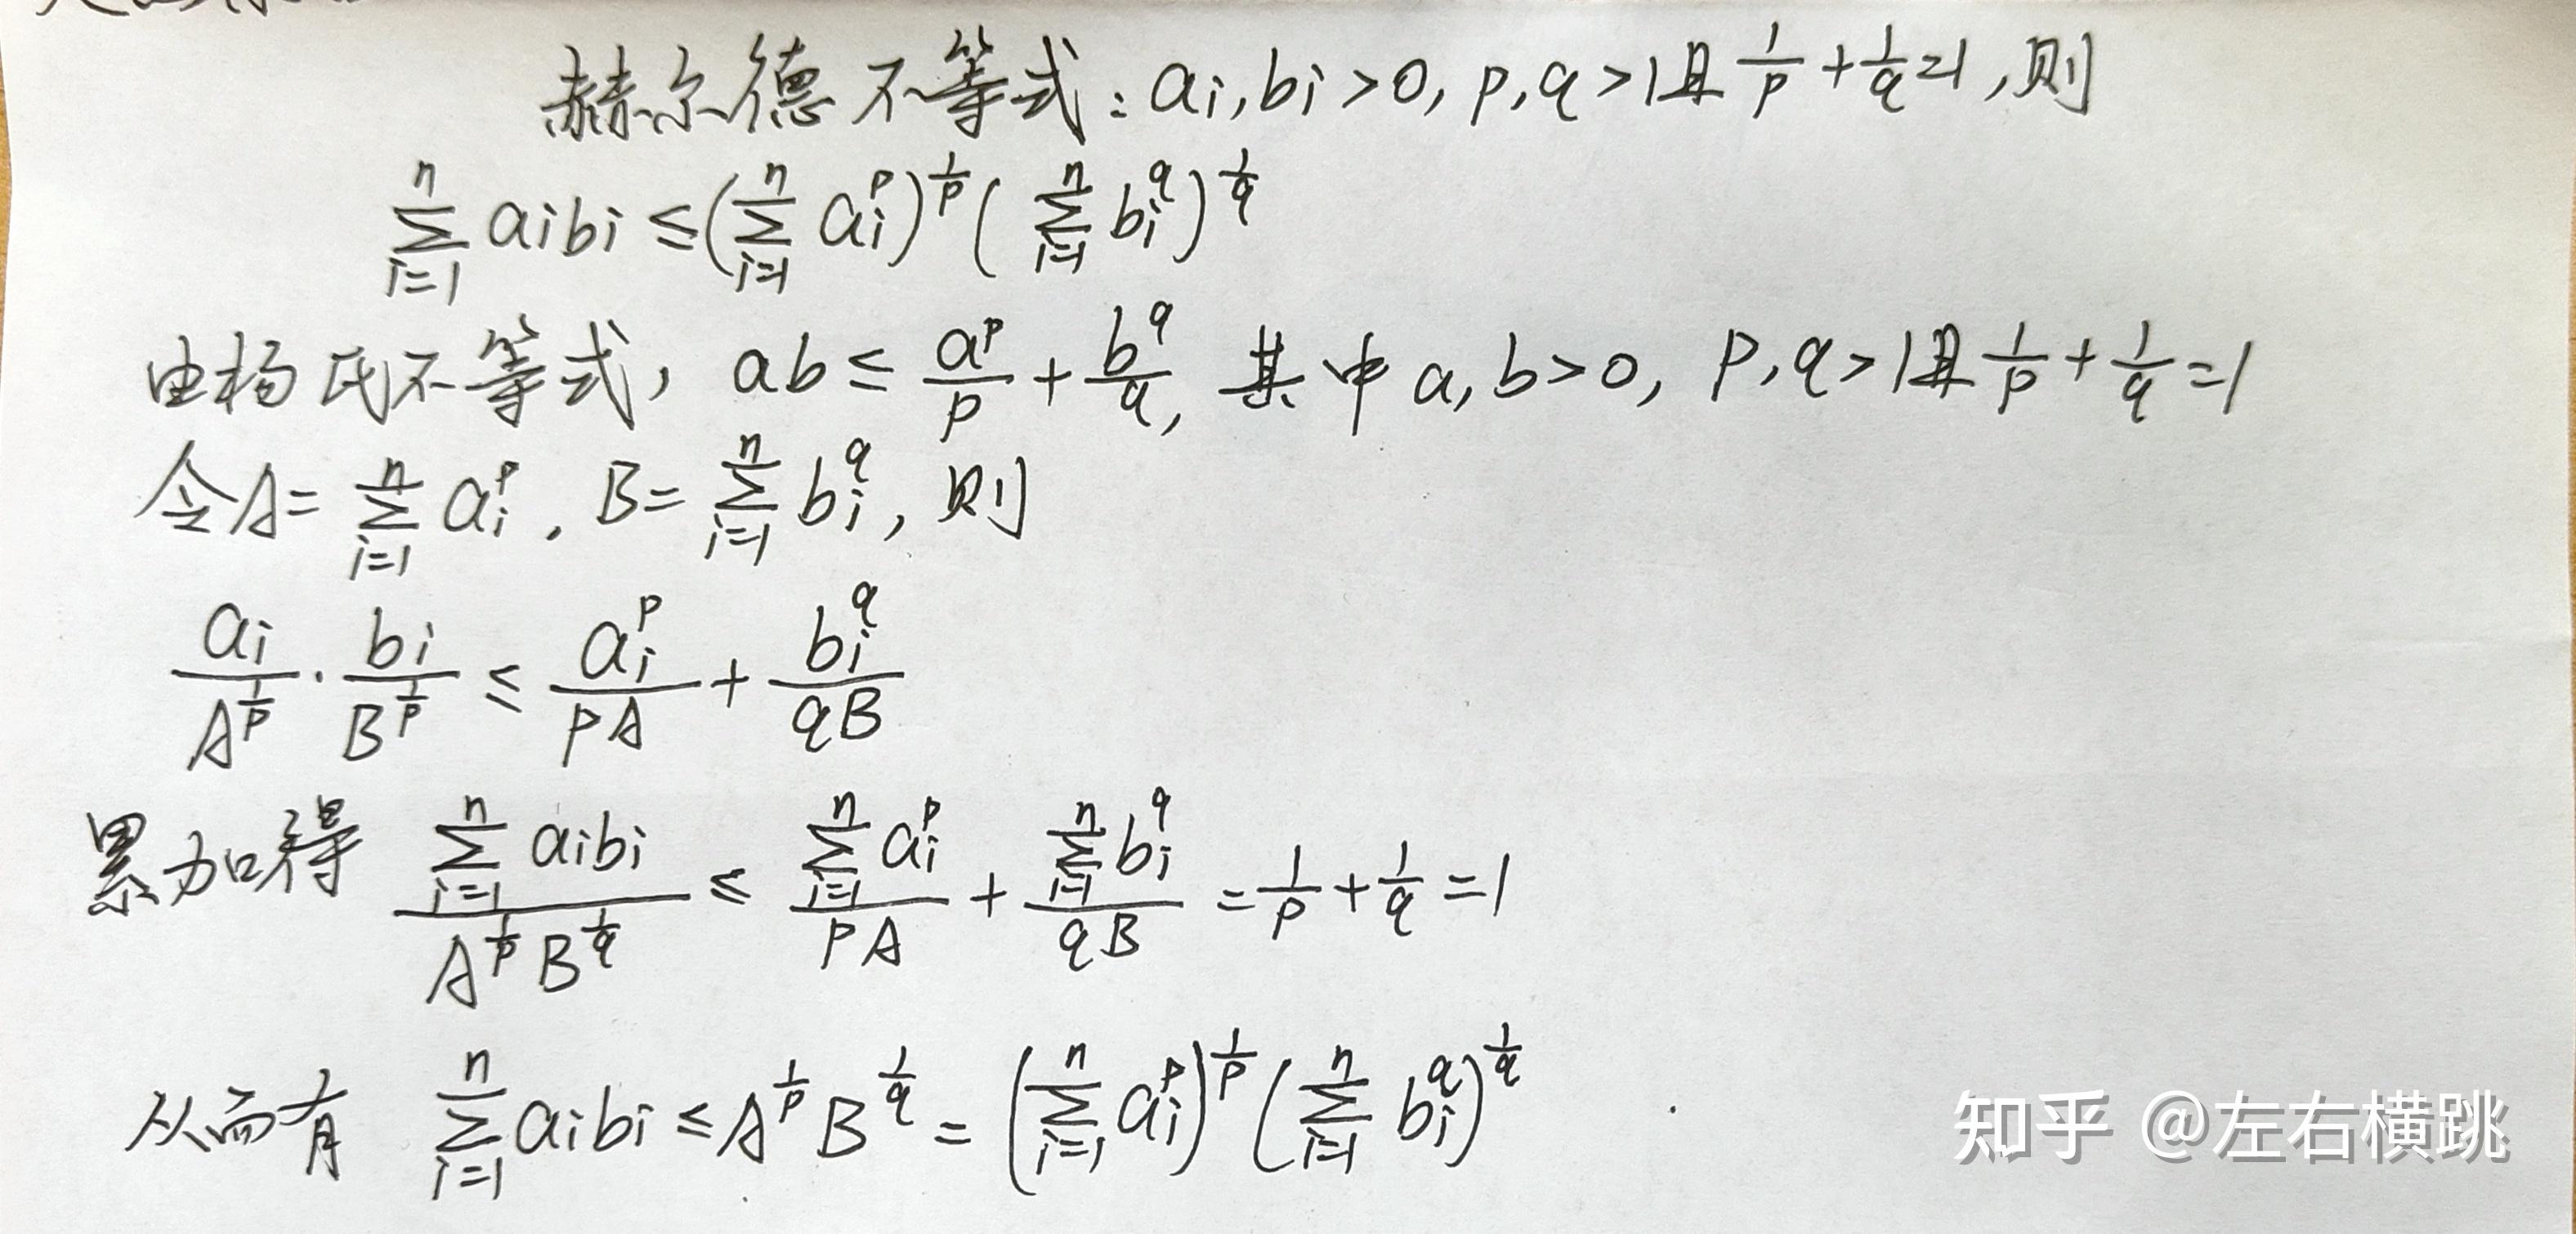 赫尔德不等式：aᵢ,bᵢ>0, p,q>1且 1/p + 1/q =1, 则
∑_{i=1}^{n} aᵢbᵢ ≤ (∑_{i=1}^{n} aᵢ^p)^{1/p} (∑_{i=1}^{n} bᵢ^q)^{1/q}
由杨氏不等式，ab ≤ a^p/p + b^q/q, 其中 a,b>0, p,q>1且 1/p + 1/q =1
令A= ∑_{i=1}^{n} aᵢ^p, B= ∑_{i=1}^{n} bᵢ^q, 则
aᵢ/A^{1/p} · bᵢ/B^{1/p} ≤ aᵢ^p/(pA) + bᵢ^q/(qB)
累加得 (∑_{i=1}^{n} aᵢbᵢ)/(A^{1/p} B^{1/q}) ≤ (∑_{i=1}^{n} aᵢ^p)/(pA) + (∑_{i=1}^{n} bᵢ^q)/(qB) = 1/p + 1/q =1
从而有 ∑_{i=1}^{n} aᵢbᵢ ≤ A^{1/p} B^{1/q} = (∑_{i=1}^{n} aᵢ^p)^{1/p} (∑_{i=1}^{n} bᵢ^q)^{1/q}
知乎 @左右横跳